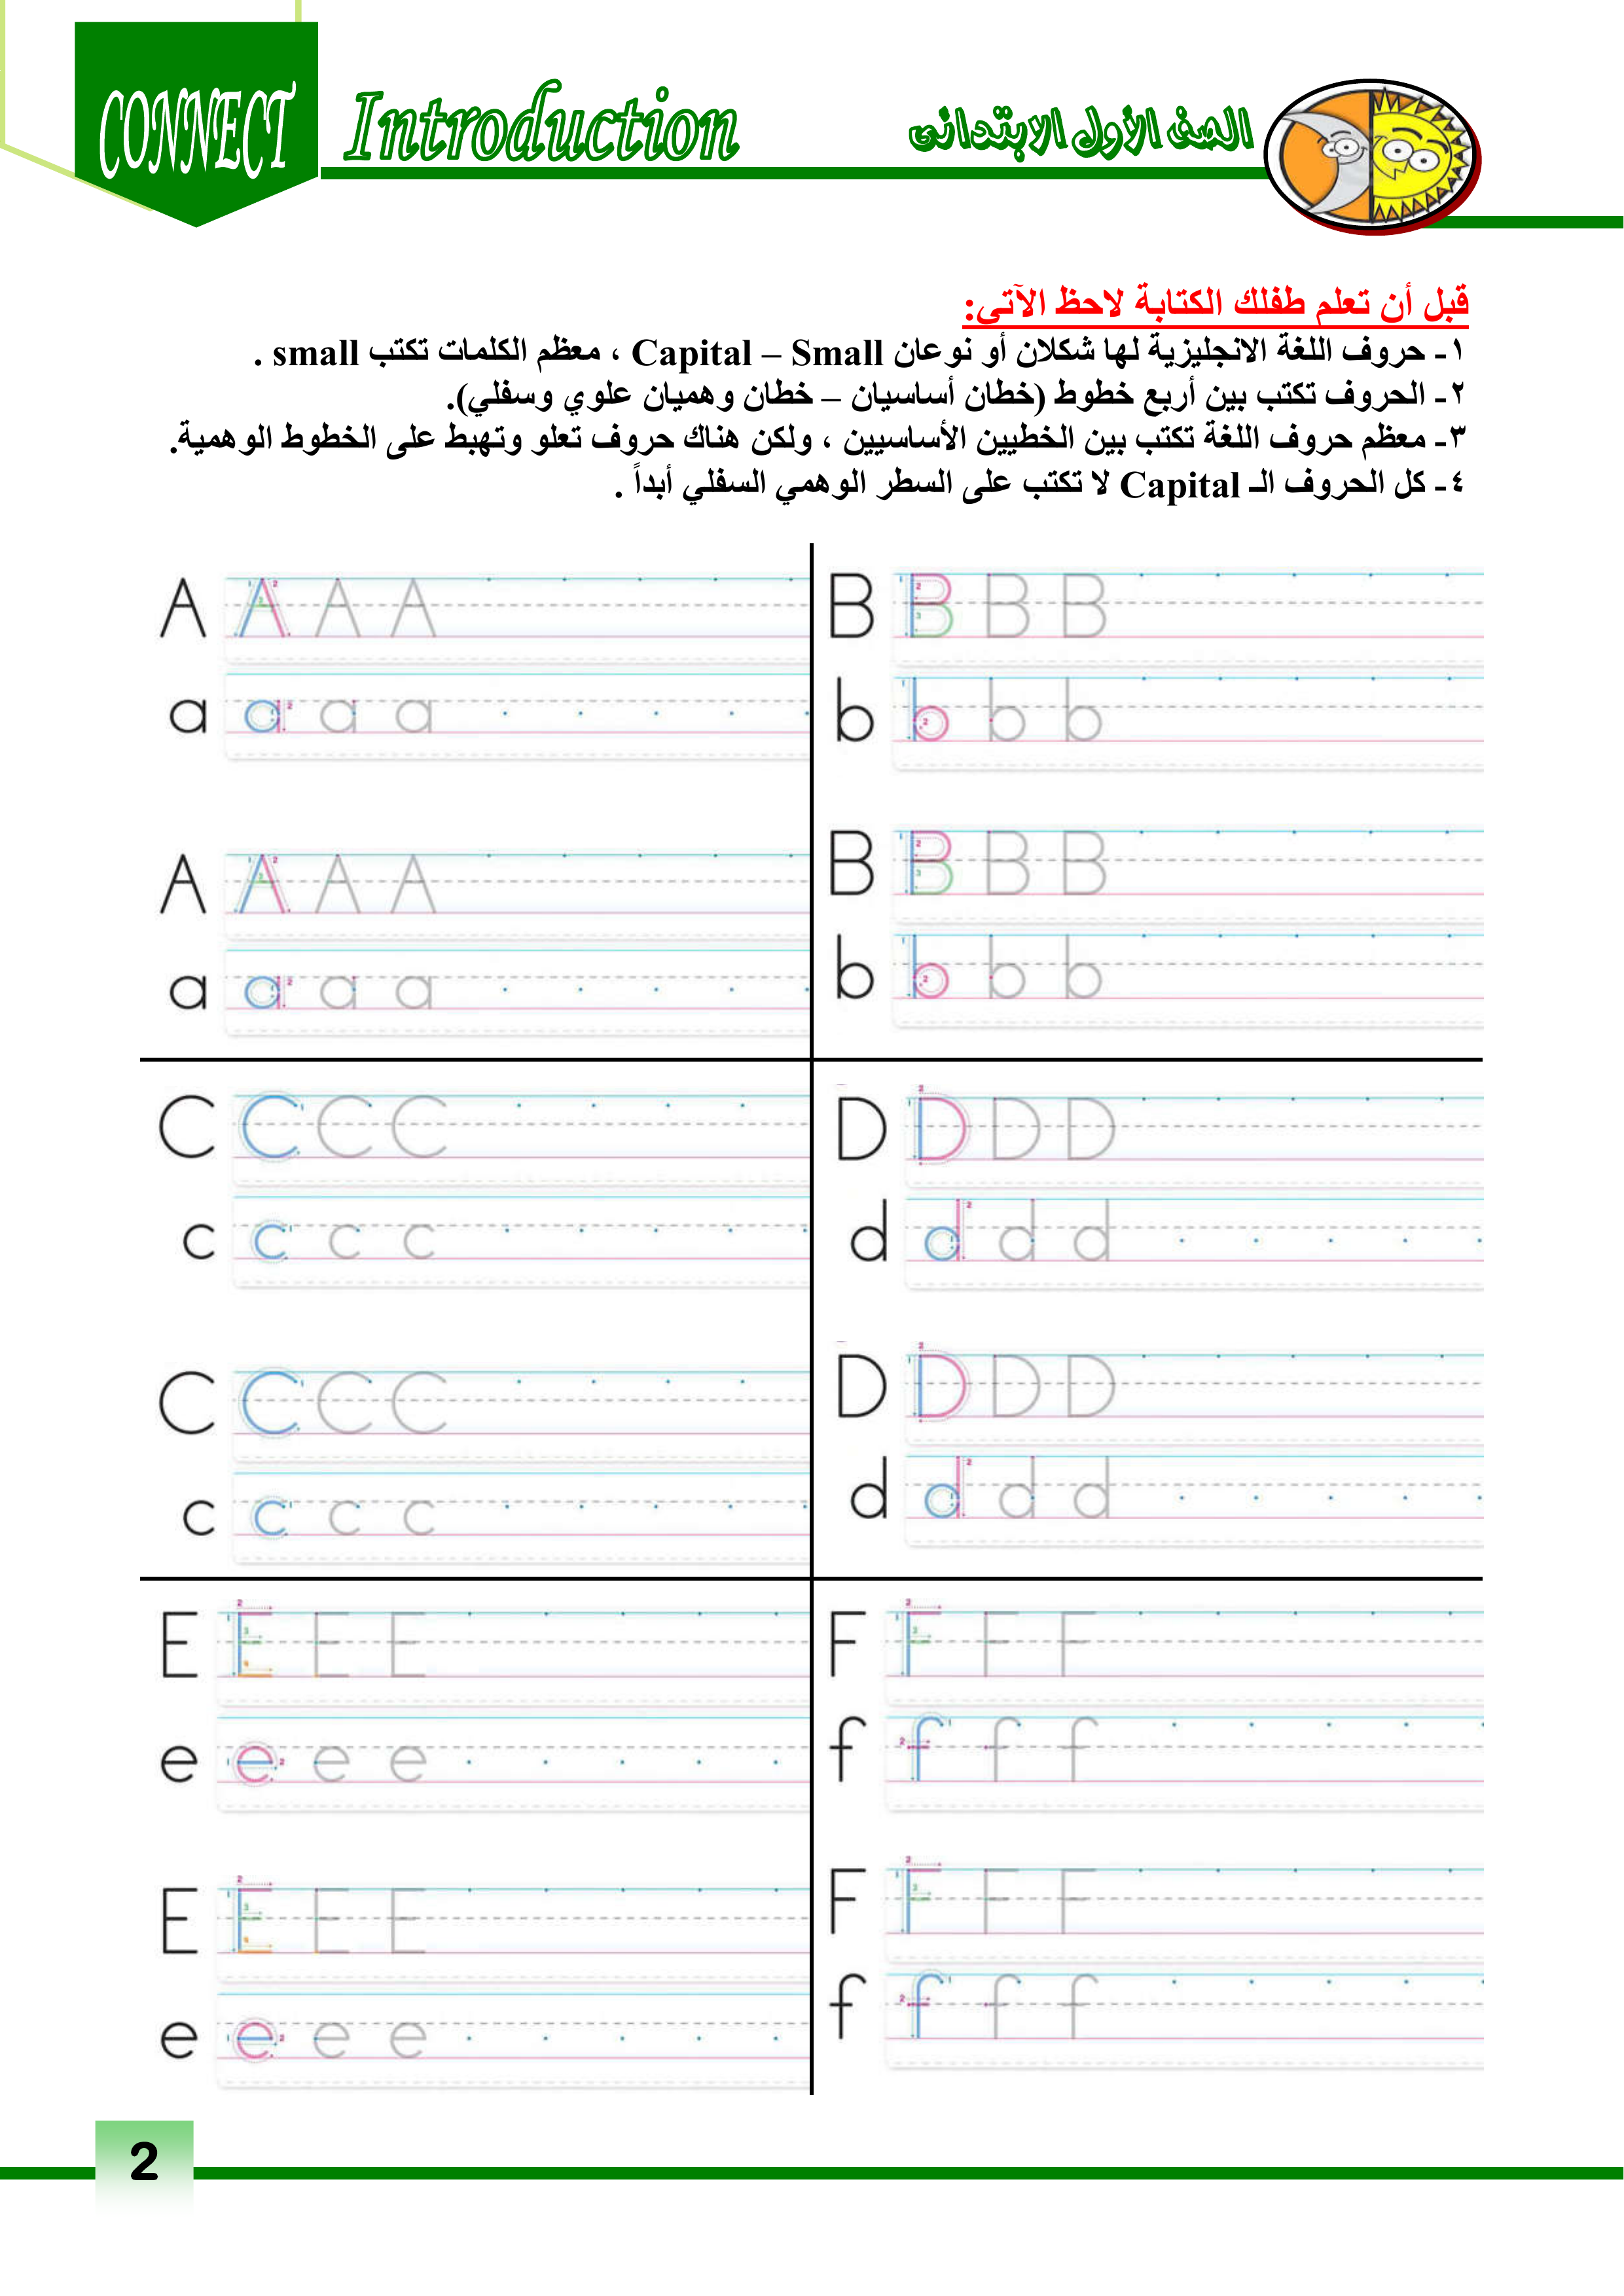 CONNECT Introduction الصف الأول الابتدائى
قبل أن تعلم طفلك الكتابة لاحظ الآتي:
١- حروف اللغة الانجليزية لها شكلان أو نوعان Capital – Small ، معظم الكلمات تكتب small .
٢- الحروف تكتب بين أربع خطوط (خطان أساسيان – خطان وهميان علوي وسفلي).
٣- معظم حروف اللغة تكتب بين الخطيين الأساسيين ، ولكن هناك حروف تعلو وتهبط على الخطوط الوهمية.
٤- كل الحروف الـ Capital لا تكتب على السطر الوهمي السفلي أبداً .
A A A A
a a a a
A A A A
a a a a
B B B B
b b b b
B B B B
b b b b
C C C C
c c c c
C C C C
c c c c
D D D D
d d d d
D D D D
d d d d
E E E E
e e e e
E E E E
e e e e
F F F F
f f f f
F F F F
f f f f
2